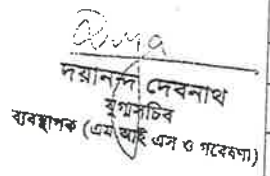 দয়ানন্দ দেবনাথ
যুগ্মসচিব
ব্যবস্থাপক (এম আই এস ও গবেষণা)